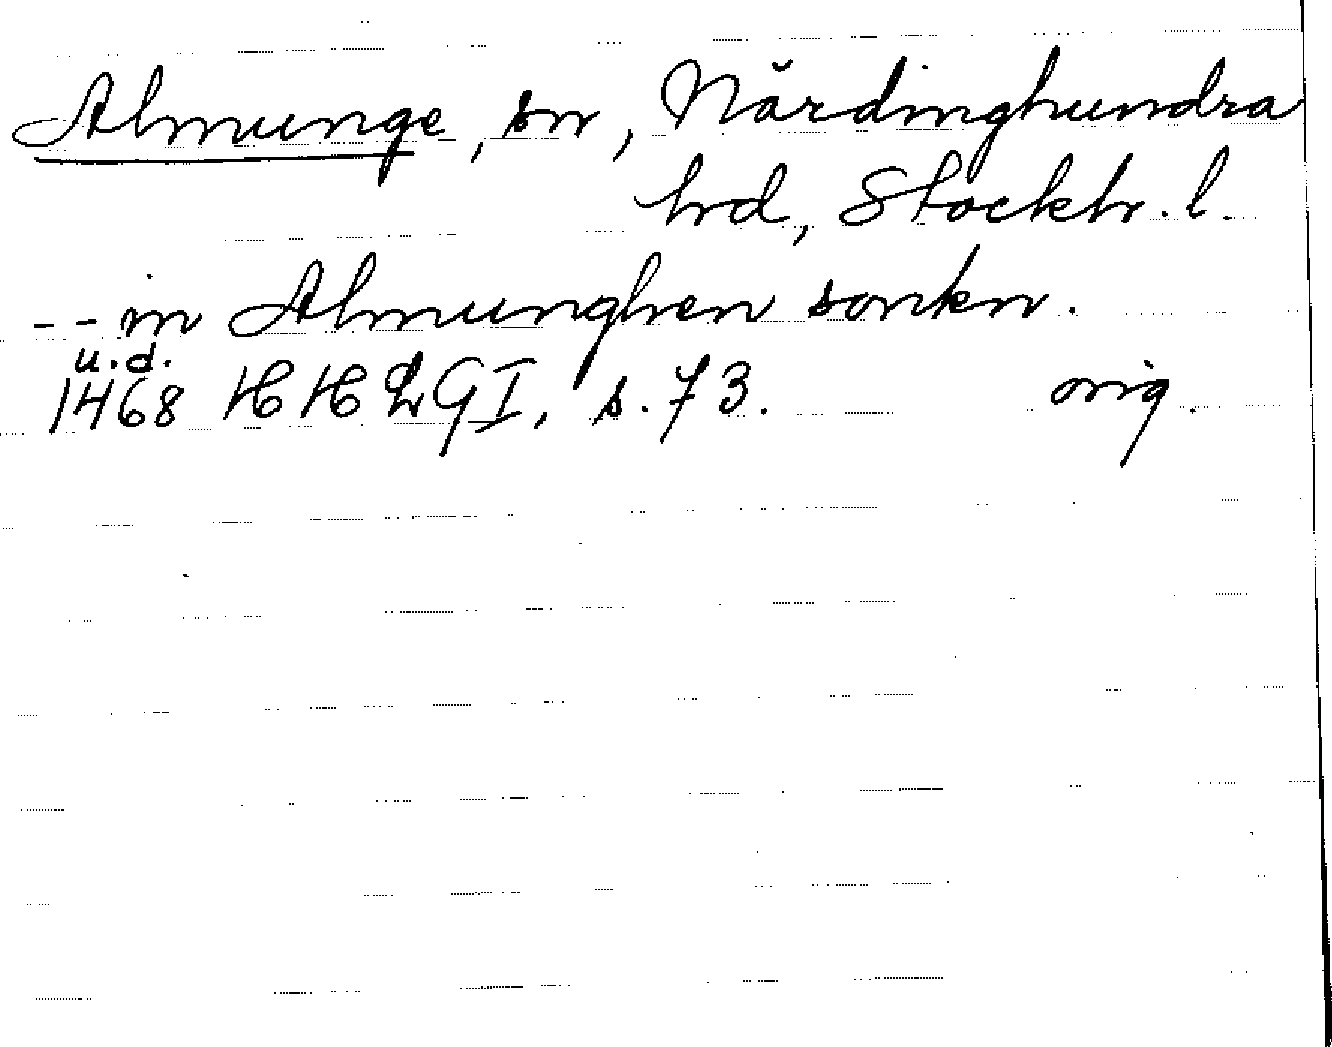 Almunge, sn, Närdinghundra
hd, Stockh. l.
-- in Almunghen sonkn.
u.d.
1468 HH 2 G I, s. 73. orig.